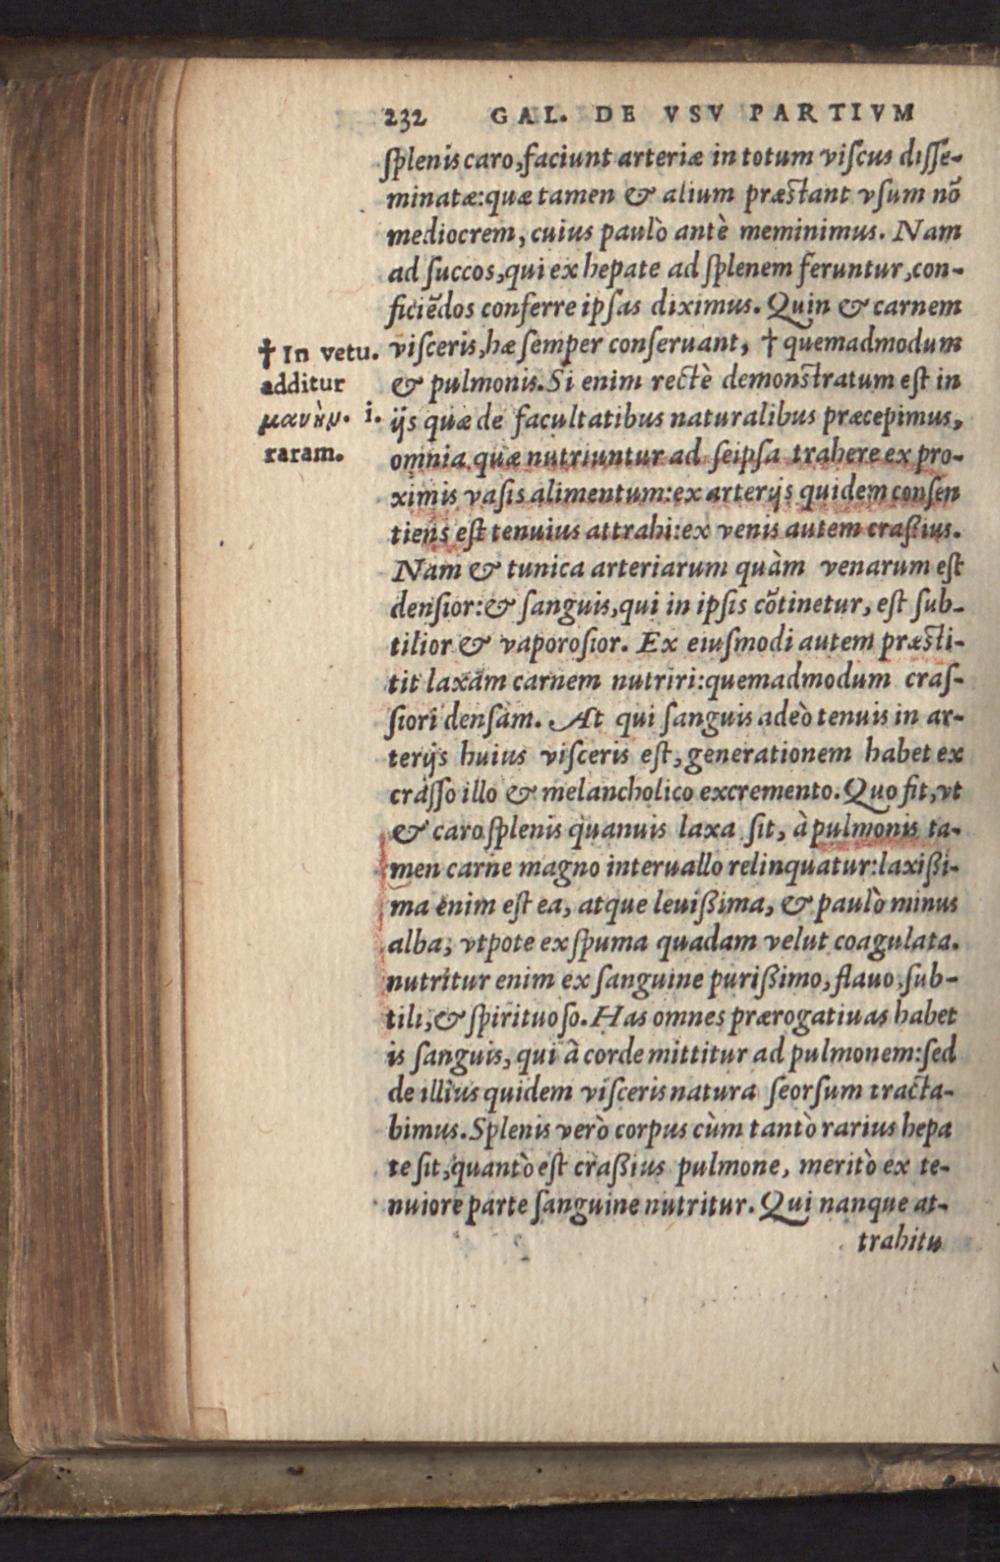 232 GAL. DE VSV PARTIVM
ſplenis caro, faciunt arteriæ in totum viſcus diſſe-
minatæ: quæ tamen & alium præſtant vſum nõ
mediocrem, cuius paulò antè meminimus. Nam
ad ſuccos, qui ex hepate ad ſplenem feruntur, con-
ficiẽdos conferre ipſas diximus. Quin & carnem
viſceris, hæ ſemper conſeruant, † quemadmodum
& pulmonis. Si enim rectè demonſtratum eſt in
ijs quæ de facultatibus naturalibus præcepimus,
omnia quæ nutriuntur ad ſeipſa trahere ex pro-
ximis vaſis alimentum: ex arterijs quidem conſen
tiens eſt tenuius attrahi: ex venis autem craßius.
Nam & tunica arteriarum quàm venarum eſt
denſior: & ſanguis, qui in ipſis cõtinetur, eſt ſub-
tilior & vaporoſior. Ex eiuſmodi autem præſti-
tit laxam carnem nutriri: quemadmodum craſ-
ſiori denſam. At qui ſanguis adeò tenuis in ar-
terijs huius viſceris eſt, generationem habet ex
craſſo illo & melancholico excremento. Quo fit, vt
& caro ſplenis quanuis laxa ſit, à pulmonis ta-
men carne magno interuallo relinquatur: laxißi-
ma enim eſt ea, atque leuißima, & paulò minus
alba, vtpote ex ſpuma quadam velut coagulata.
nutritur enim ex ſanguine purißimo, flauo, ſub-
tili, & ſpirituoſo. Has omnes prærogatiuas habet
is ſanguis, qui à corde mittitur ad pulmonem: ſed
de illius quidem viſceris natura ſeorſum tracta-
bimus. Splenis verò corpus cùm tantò rarius hepa
te ſit, quantò eſt craßius pulmone, meritò ex te-
nuiore parte ſanguine nutritur. Qui nanque at-
trahitu
† In vetu.
additur
μανὴν. i.
raram.